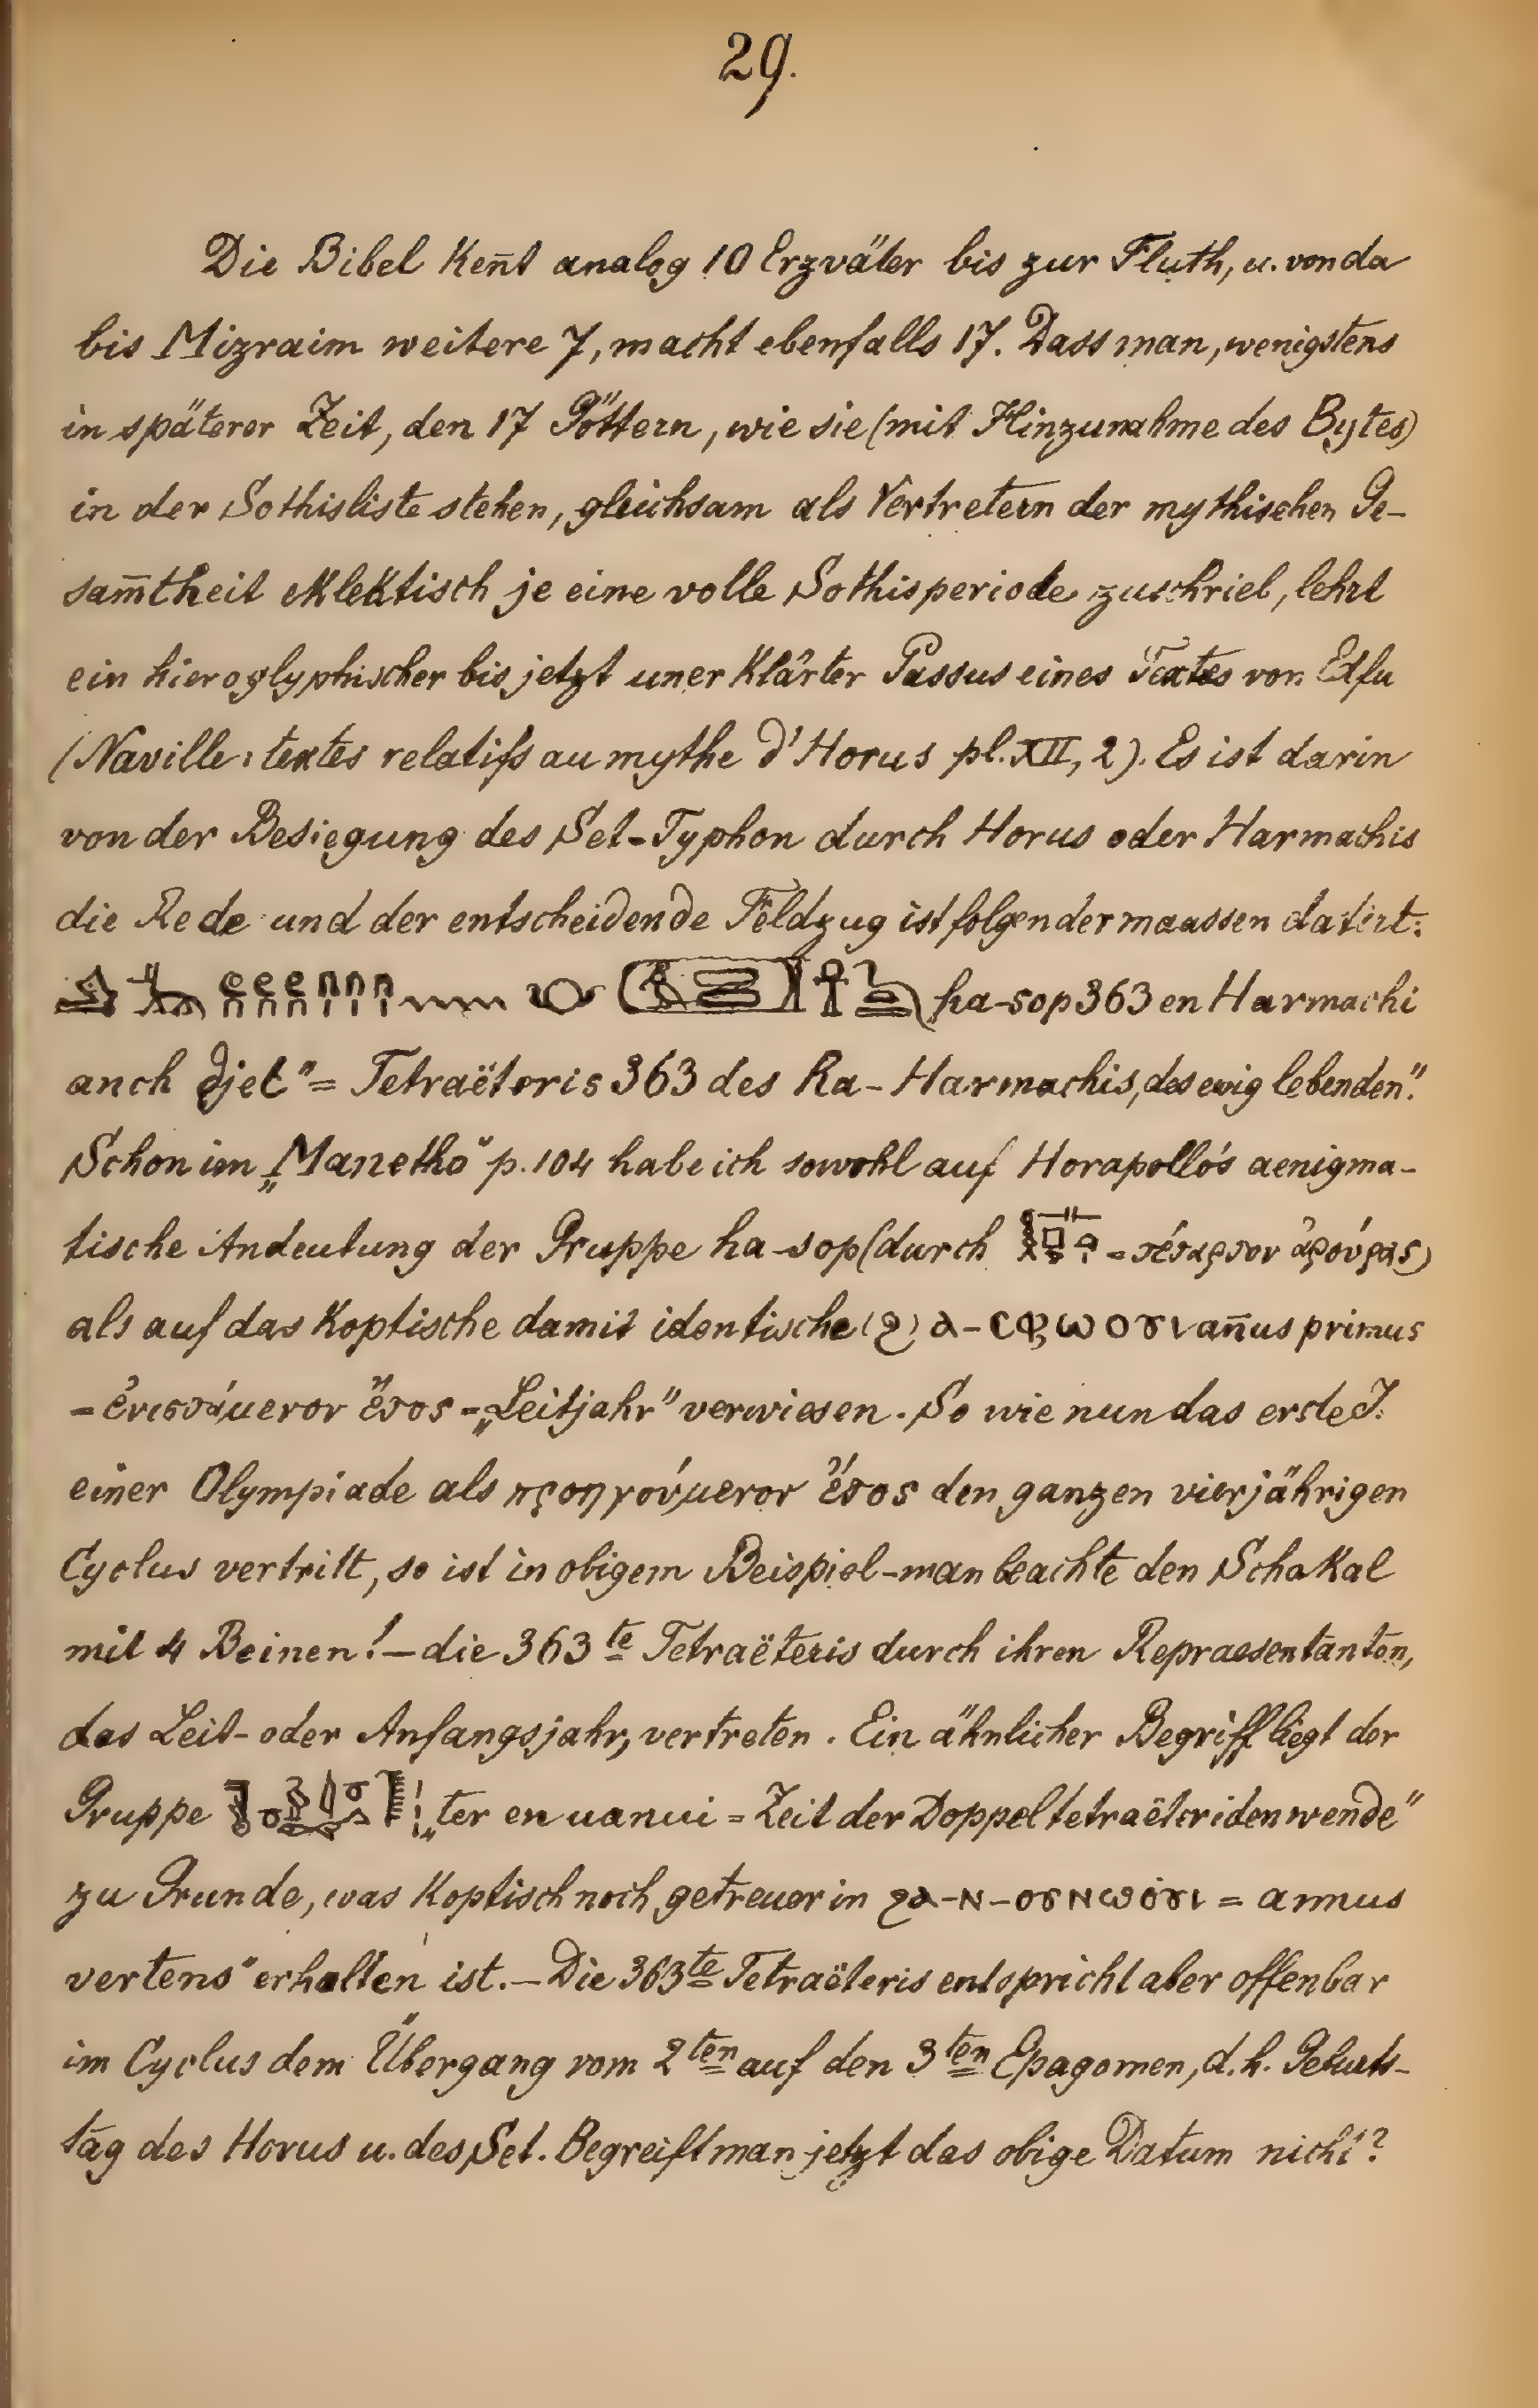 29.
Die Bibel Ken̄t analog 10 Erzväter bis zur Fluth, u. von da
bis Mizraim weitere 7, macht ebenfalls 17. Dass man, wenigstens
in späterer Zeit, den 17 Göttern, wie sie (mit Hinzunahme des Bytes)
in der Sothisliste stehen, gleichsam als Vertretern der mythischen Ge-
sam̄theit eklektisch je eine volle Sothisperiode zuschrieb, lehrt
ein hieroglyphischer bis jetzt unerklärter Passus eines Textes von Edfu
(Naville: textes relatifs au mythe d'Horus pl. XII, 2). Es ist darin
von der Besiegung des Set-Typhon durch Horus oder Harmachis
die Rede und der entscheidende Feldzug ist folgendermaassen datirt:
ha-sop 363 en Harmachi
anch djet" = Tetraëteris 363 des Ra-Harmachis, des ewig lebenden".
Schon im „Manetho" p. 104 habe ich sowohl auf Horapollo's aenigma-
tische Andeutung der Gruppe ha-sop (durch = τέταρτον ἀρούρας)
als auf das Koptische damit identische (ϩ)ⲁ-ⲥⲫⲱⲟⲩⲓ an̄us primus
= ἐνιστάμενον ἔτος = „Leitjahr" verwiesen. So wie nun das erste J.
einer Olympiade als προηγούμενον ἔτος den ganzen vierjährigen
Cyclus vertritt, so ist in obigem Beispiel - man beachte den Schakal
mit 4 Beinen! — die 363te Tetraëteris durch ihren Repraesentanten,
das Leit- oder Anfangsjahr, vertreten. Ein ähnlicher Begriff liegt der
Gruppe „ter en uanui = Zeit der Doppeltetraëteridenwende"
zu Grunde, was Koptisch noch getreuer in ϩⲁ-ⲛ-ⲟⲩⲛⲱⲟⲩⲓ = annus
vertens" erhalten ist. — Die 363te Tetraëteris entspricht aber offenbar
im Cyclus dem Übergang vom 2ten auf den 3ten Epagomen, d.h. Geburts-
tag des Horus u. des Set. Begreift man jetzt das obige Datum nicht?